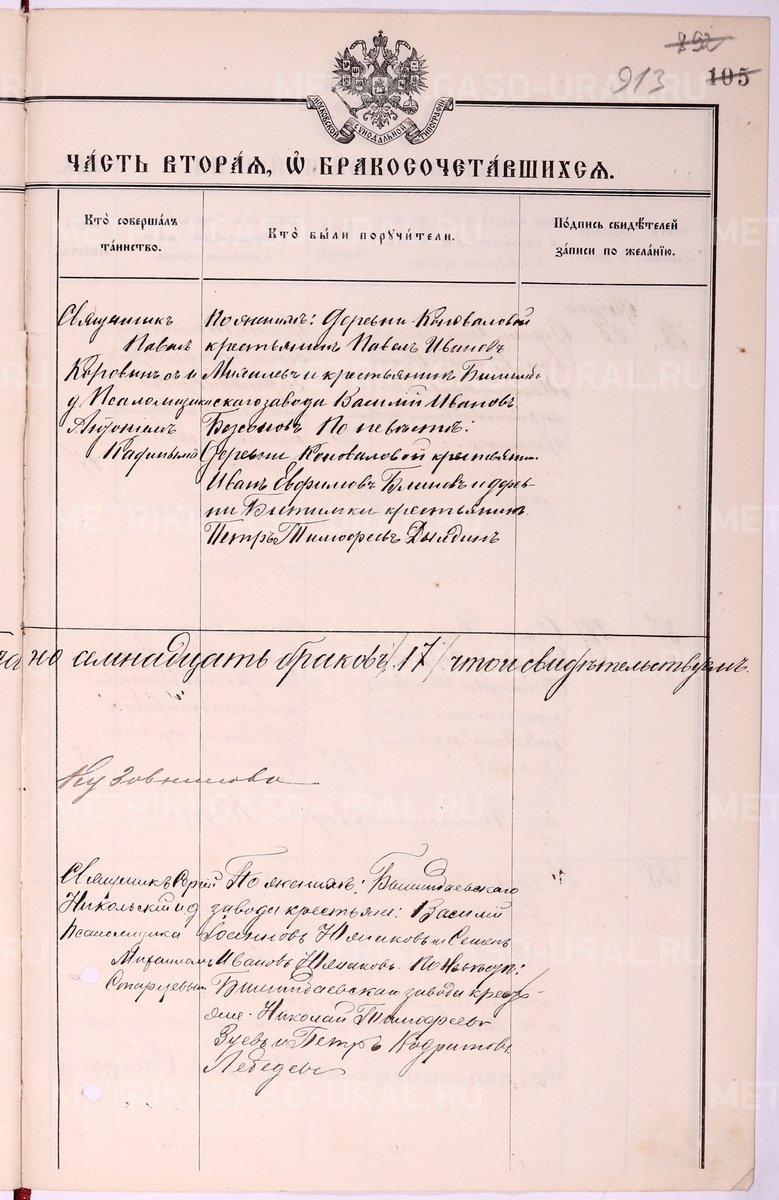 892
913 105
МОСКОВСКОЙ СѴНОДАЛЬНОЙ ТИПОГРАФІИ
ЧА́СТЬ ВТОРА́Я, Ѡ БРАКОСОЧЕТА́ВШИХСЯ.
Кто̀ соверша́лъ та́инство.
Кто̀ бы́ли порꙋчи́тели.
По́дпись свидѣ́телей за́писи по жела́нїю.
Священникъ
Павелъ
Коровинъ съ и
д Псаломщик
Анѳоніемъ
По женихѣ: Деревни Коноваловой
крестьянинъ Павелъ Ивановъ
и крестьянинъ Билимба
скаго завода Василій Ивановъ
По невѣстѣ:
Деревни Коноваловой крестьянин
Иванъ Евфимовъ Блиновъ и дерев
ни Битимки крестьянинъ
Петръ Тимоѳеевъ Дылдинъ
но семнадцать браковъ /17/ что и свидѣтельствуемъ.
Священникъ Сергій
Никольский и д
Псаломщика
Михаиломъ
По женихѣ: Билимбаевскаго
завода крестьяне: Василій
Іоанновъ и Семенъ
Ивановъ По невѣстѣ:
Билимбаевскаго завода крест
яне Николай Тимоѳеевъ
Зуевъ и Петръ
Лебедевъ
METRIKI.GASO-URAL.RU